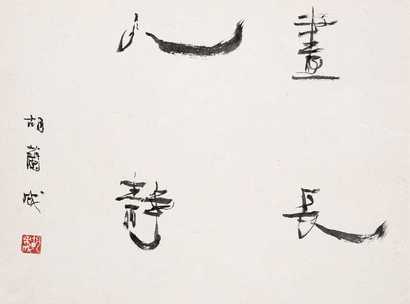 晝長
人靜
胡蘭成